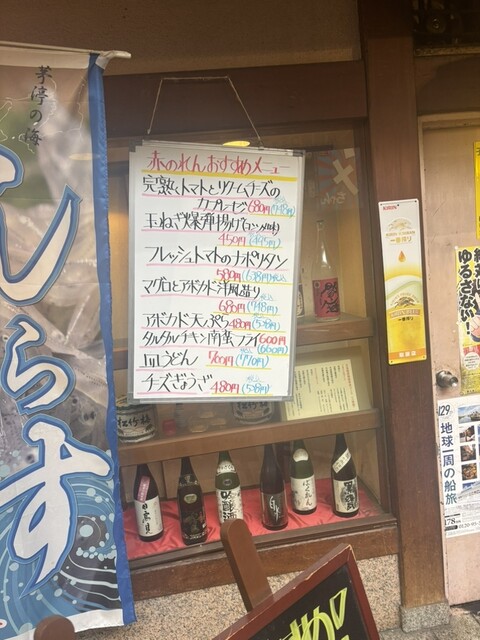 茅渟の海
しらす
赤のれんおすすめメニュー
完熟トマトとクリームチーズの
カプレーゼ 680円(748円)
玉ねぎ爆弾揚げ(コンソメ味)
450円(495円)
フレッシュトマトのナポリタン
580円(638円)税込
マグロとアボカド洋風造り
680円(748円)
アボカド天ぷら 480円(528円)
タルタルチキン南蛮フライ 600円
(660円)
皿うどん 700円(770円)
チーズぎょうざ 480円(528円)
KIRIN
一番搾り
一番搾り
ゆるさない!
129
地球一周の船旅
松竹梅
日高見
吟醸酒